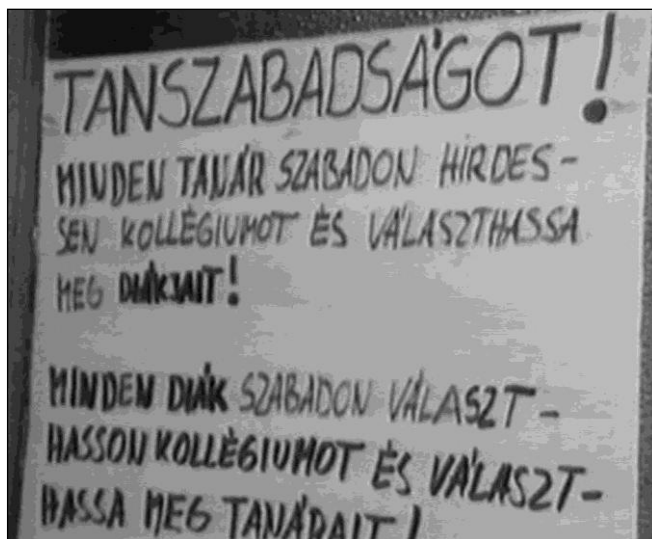 TANSZABADSÁGOT!
MINDEN TANÁR SZABADON HIRDES-
SEN KOLLÉGIUMOT ÉS VÁLASZTHASSA
MEG DIÁKJAIT!
MINDEN DIÁK SZABADON VÁLASZT-
HASSON KOLLÉGIUMOT ÉS VÁLASZT-
HASSA MEG TANÁRAIT!